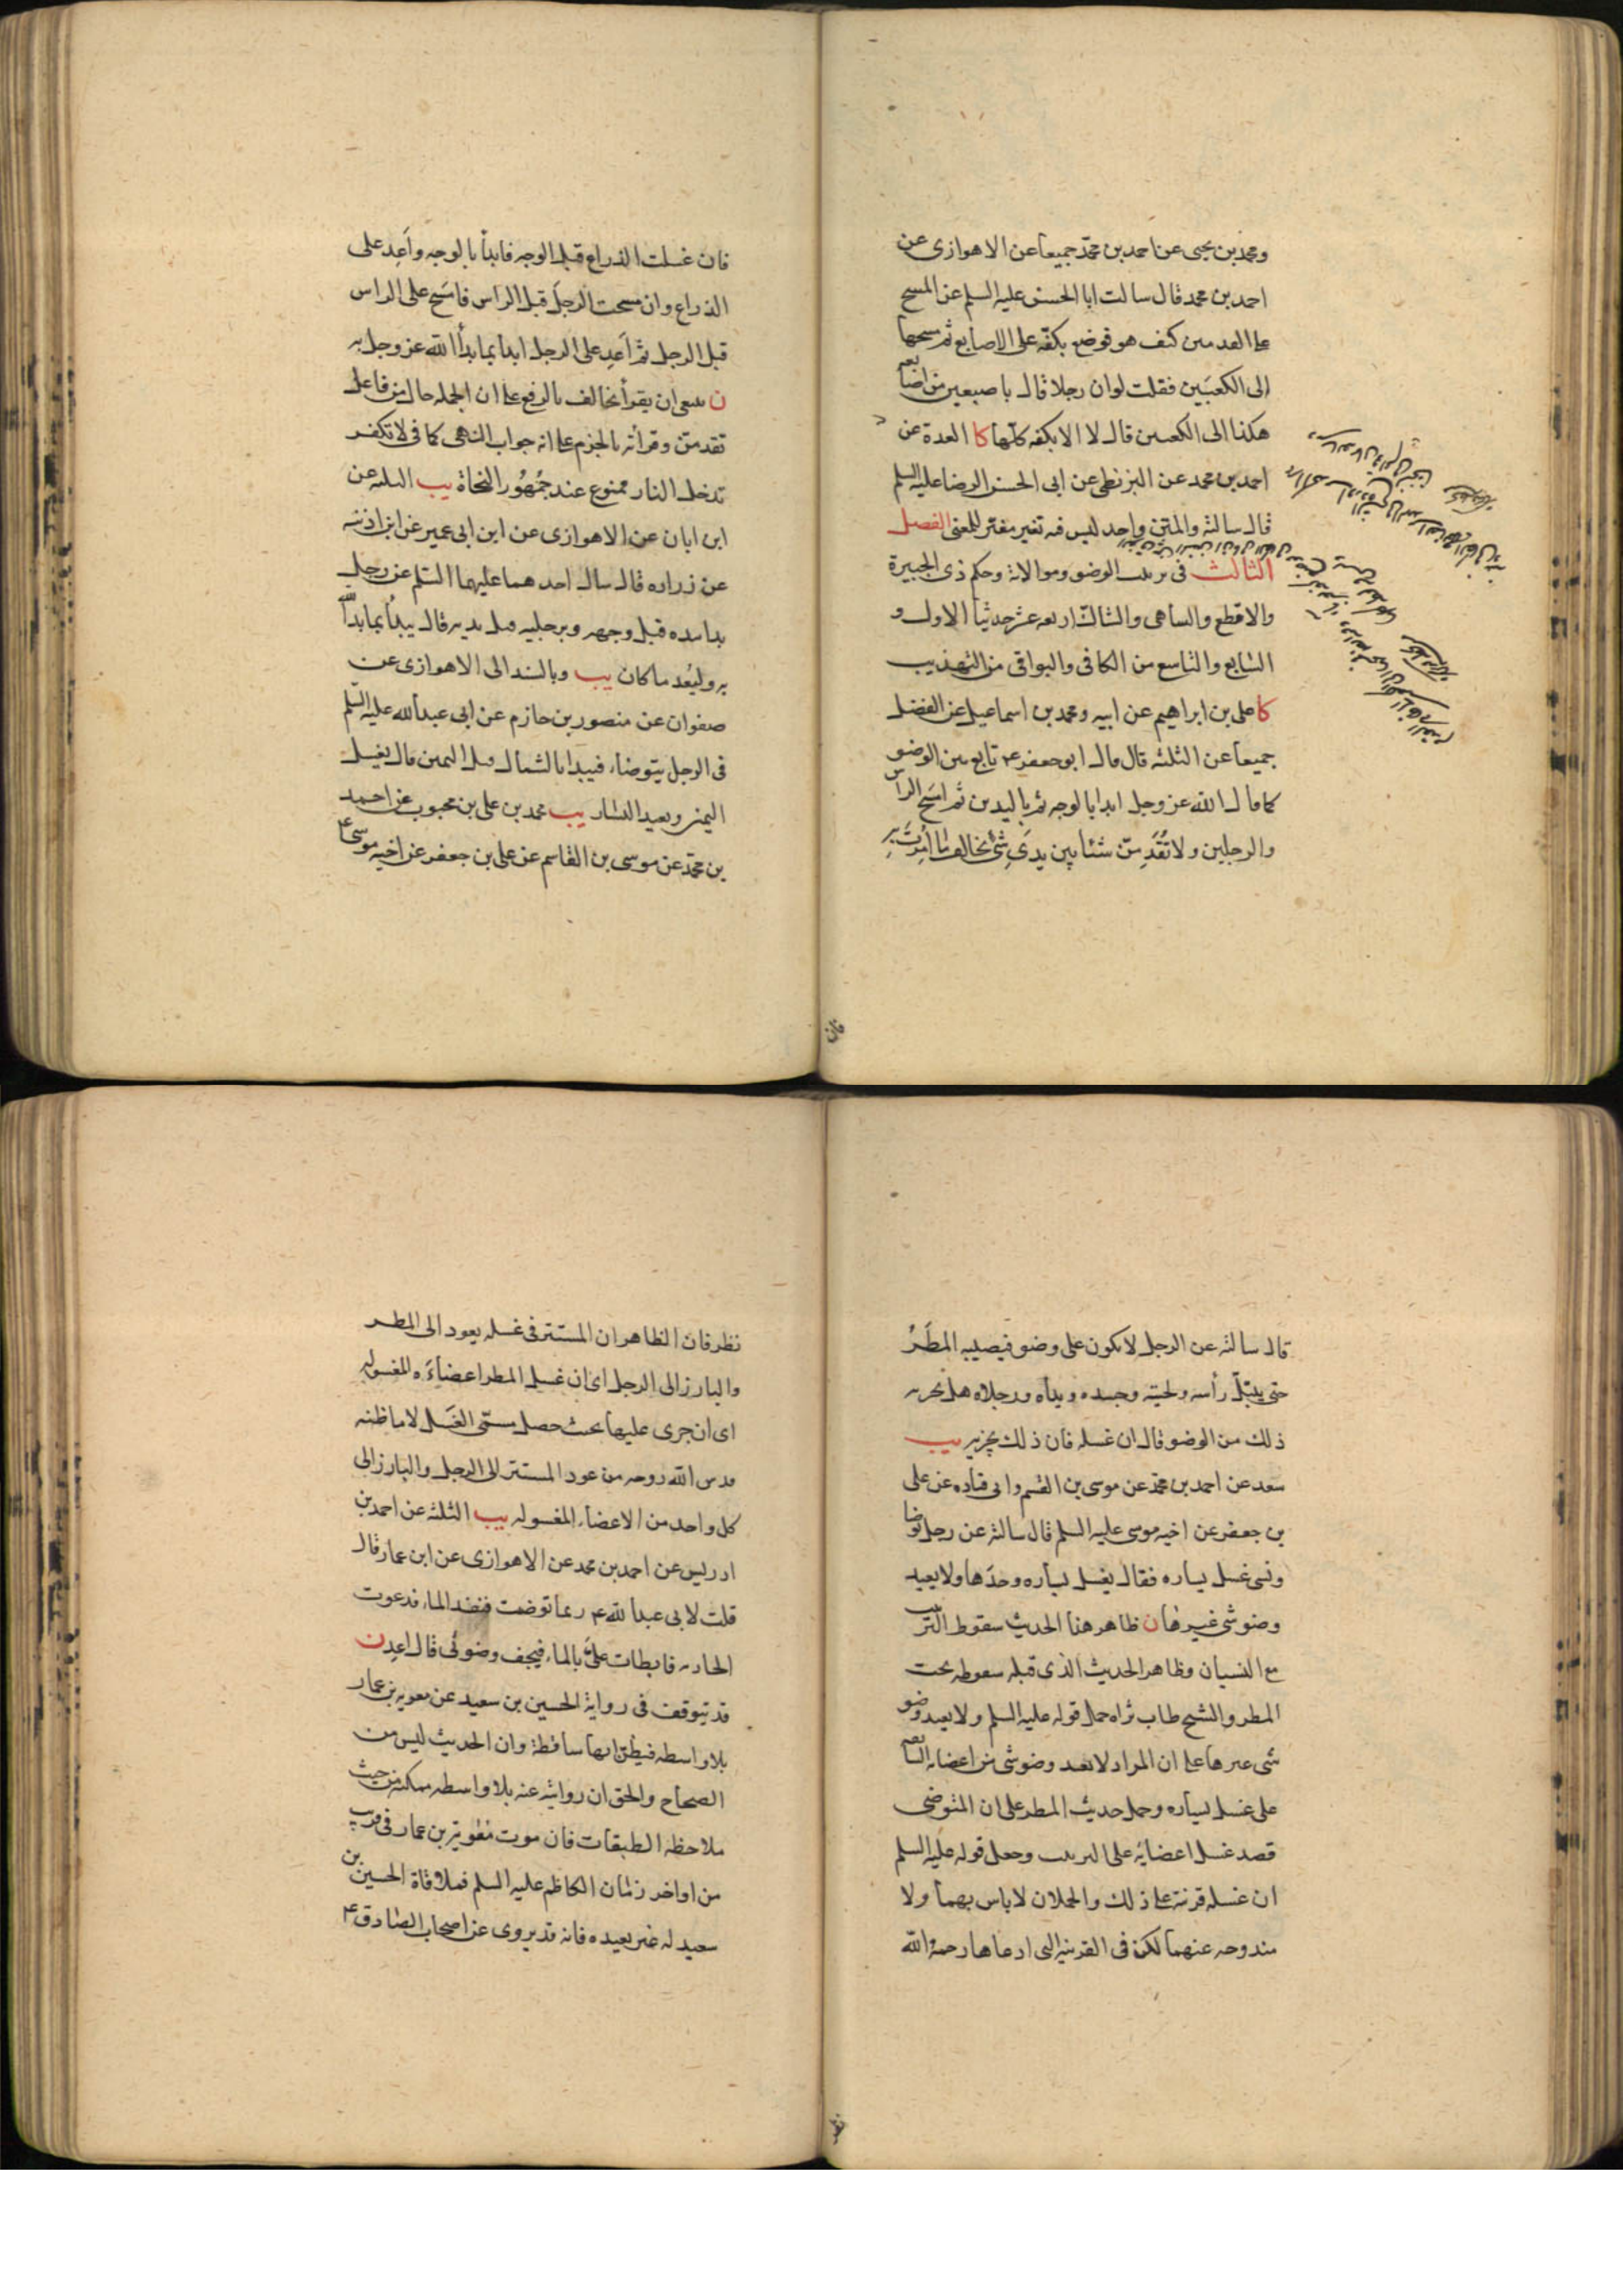 ومحمد بن يحيى عن احمد بن محمد جميعا عن الاهوازى عن
احمد بن محمد قال سالت ابا الحسن عليه السلم عن المسح
على القدمين كيف هو فوضع بكفه على الاصابع ثم مسحها
الى الكعبين فقلت لو ان رجلا قال باصبعين من اصابعه
هكذا الى الكعبين قال لا الا بكفه كلها كا العدة عن
احمد بن محمد عن البزنطى عن ابى الحسن الرضا عليه السلم
قال سالته والمتن واحد ليس فيه تغيير مغير للمعنى الفصل
الثالث فى ترتيب الوضو وموالاته وحكم ذى الجبيرة
والاقطع والساهى والشاك اربعه عشر حديثا الاول و
السابع والتاسع من الكافى والبواقى من التهذيب
كا على بن ابراهيم عن ابيه ومحمد بن اسماعيل عن الفضل
جميعا عن الثلثه قال قال ابو جعفر ع تابع بين الوضو
كما قال الله عز وجل ابدا بالوجه ثم باليدين ثم امسح الراس
والرجلين ولا تقدمن شيئا بين يدى شئ تخالف ما امرت به
فان
فان غسلت الذراع قبل الوجه فابدأ بالوجه واعد على
الذراع وان مسحت الرجل قبل الراس فامسح على الراس
قبل الرجل ثم اعد على الرجل ابدا بما بدأ الله عز وجل به
ن ينبغى ان يقرأ تخالف بالرفع على ان الجمله حال من فاعل
تقدمن وقرأته بالجزم على انه جواب النهى كما فى لا تكفر
تدخل النار ممنوع عند جمهور النحاة يب الثلثه عن
ابن ابان عن الاهوازى عن ابن ابى عمير عن ابن اذينه
عن زراره قال سال احدهما عليهما السلم عن رجل
بدا بيده قبل وجهه وبرجليه قبل يديه قال يبدأ بما بدأ الله
به وليعد ما كان يب وبالسند الى الاهوازى عن
صفوان عن منصور بن حازم عن ابى عبد الله عليه السلم
فى الرجل يتوضاء فيبدا بالشمال قبل اليمين قال يغسل
اليمنى ويعيد اليسار يب محمد بن على بن محبوب عن احمد
بن محمد عن موسى بن القاسم عن على بن جعفر عن اخيه موسى ع
قال سالته عن الرجل لا يكون على وضو فيصيبه المطر
حتى يبتل رأسه ولحيته وجسده ويداه ورجلاه هل يجزيه
ذلك من الوضو قال ان غسله فان ذلك يجزيه يب
سعد عن احمد بن محمد عن موسى بن القسم وابى قتاده عن على
بن جعفر عن اخيه موسى عليه السلم قال سالته عن رجل توضا
ونسى غسل يساره فقال يغسل يساره وحدها ولا يعيد
وضو شى غيرها ن ظاهر هذا الحديث سقوط الترتيب
مع النسيان وظاهر الحديث الذى قبله سقوطه تحت
المطر والشيخ طاب ثراه حمل قوله عليه السلم ولا يعيد وضو
شى غيرها على ان المراد لا يعيد وضو شى من اعضائه السابقه
على غسل يساره وحمل حديث المطر على ان المتوضى
قصد غسل اعضائه على الترتيب وجعل قوله عليه السلم
ان غسله قرينة على ذلك والحملان لا باس بهما ولا
مندوحه عنهما لكن فى القرينه التى ادعاها رحمه الله
نظر
نظر فان الظاهر ان المستتر فى غسله يعود الى المطر
والبارز الى الرجل اى ان غسل المطر اعضاءه المغسوله
اى ان جرى عليها بحيث حصل مسمى الغسل لا ما ظنه
قدس الله روحه من عود المستتر الى الرجل والبارز الى
كل واحد من الاعضاء المغسوله يب الثلثه عن احمد بن
ادريس عن احمد بن محمد عن الاهوازى عن ابن عمار قال
قلت لابى عبد الله ع ربما توضات فنفد الماء فدعوت
الجاريه فابطات على بالماء فيجف وضوئى قال اعد ن
قد يتوقف فى رواية الحسين بن سعيد عن معويه بن عمار
بلا واسطه فيظن انها ساقطة وان الحديث ليس من
الصحاح والحق ان روايته عنه بلا واسطه ممكنه من حيث
ملاحظه الطبقات فان موت معوية بن عمار فى قريب
من اواخر زمان الكاظم عليه السلم فملاقاة الحسين بن
سعيد له غير بعيده فانه قد يروى عن اصحاب الصادق ع